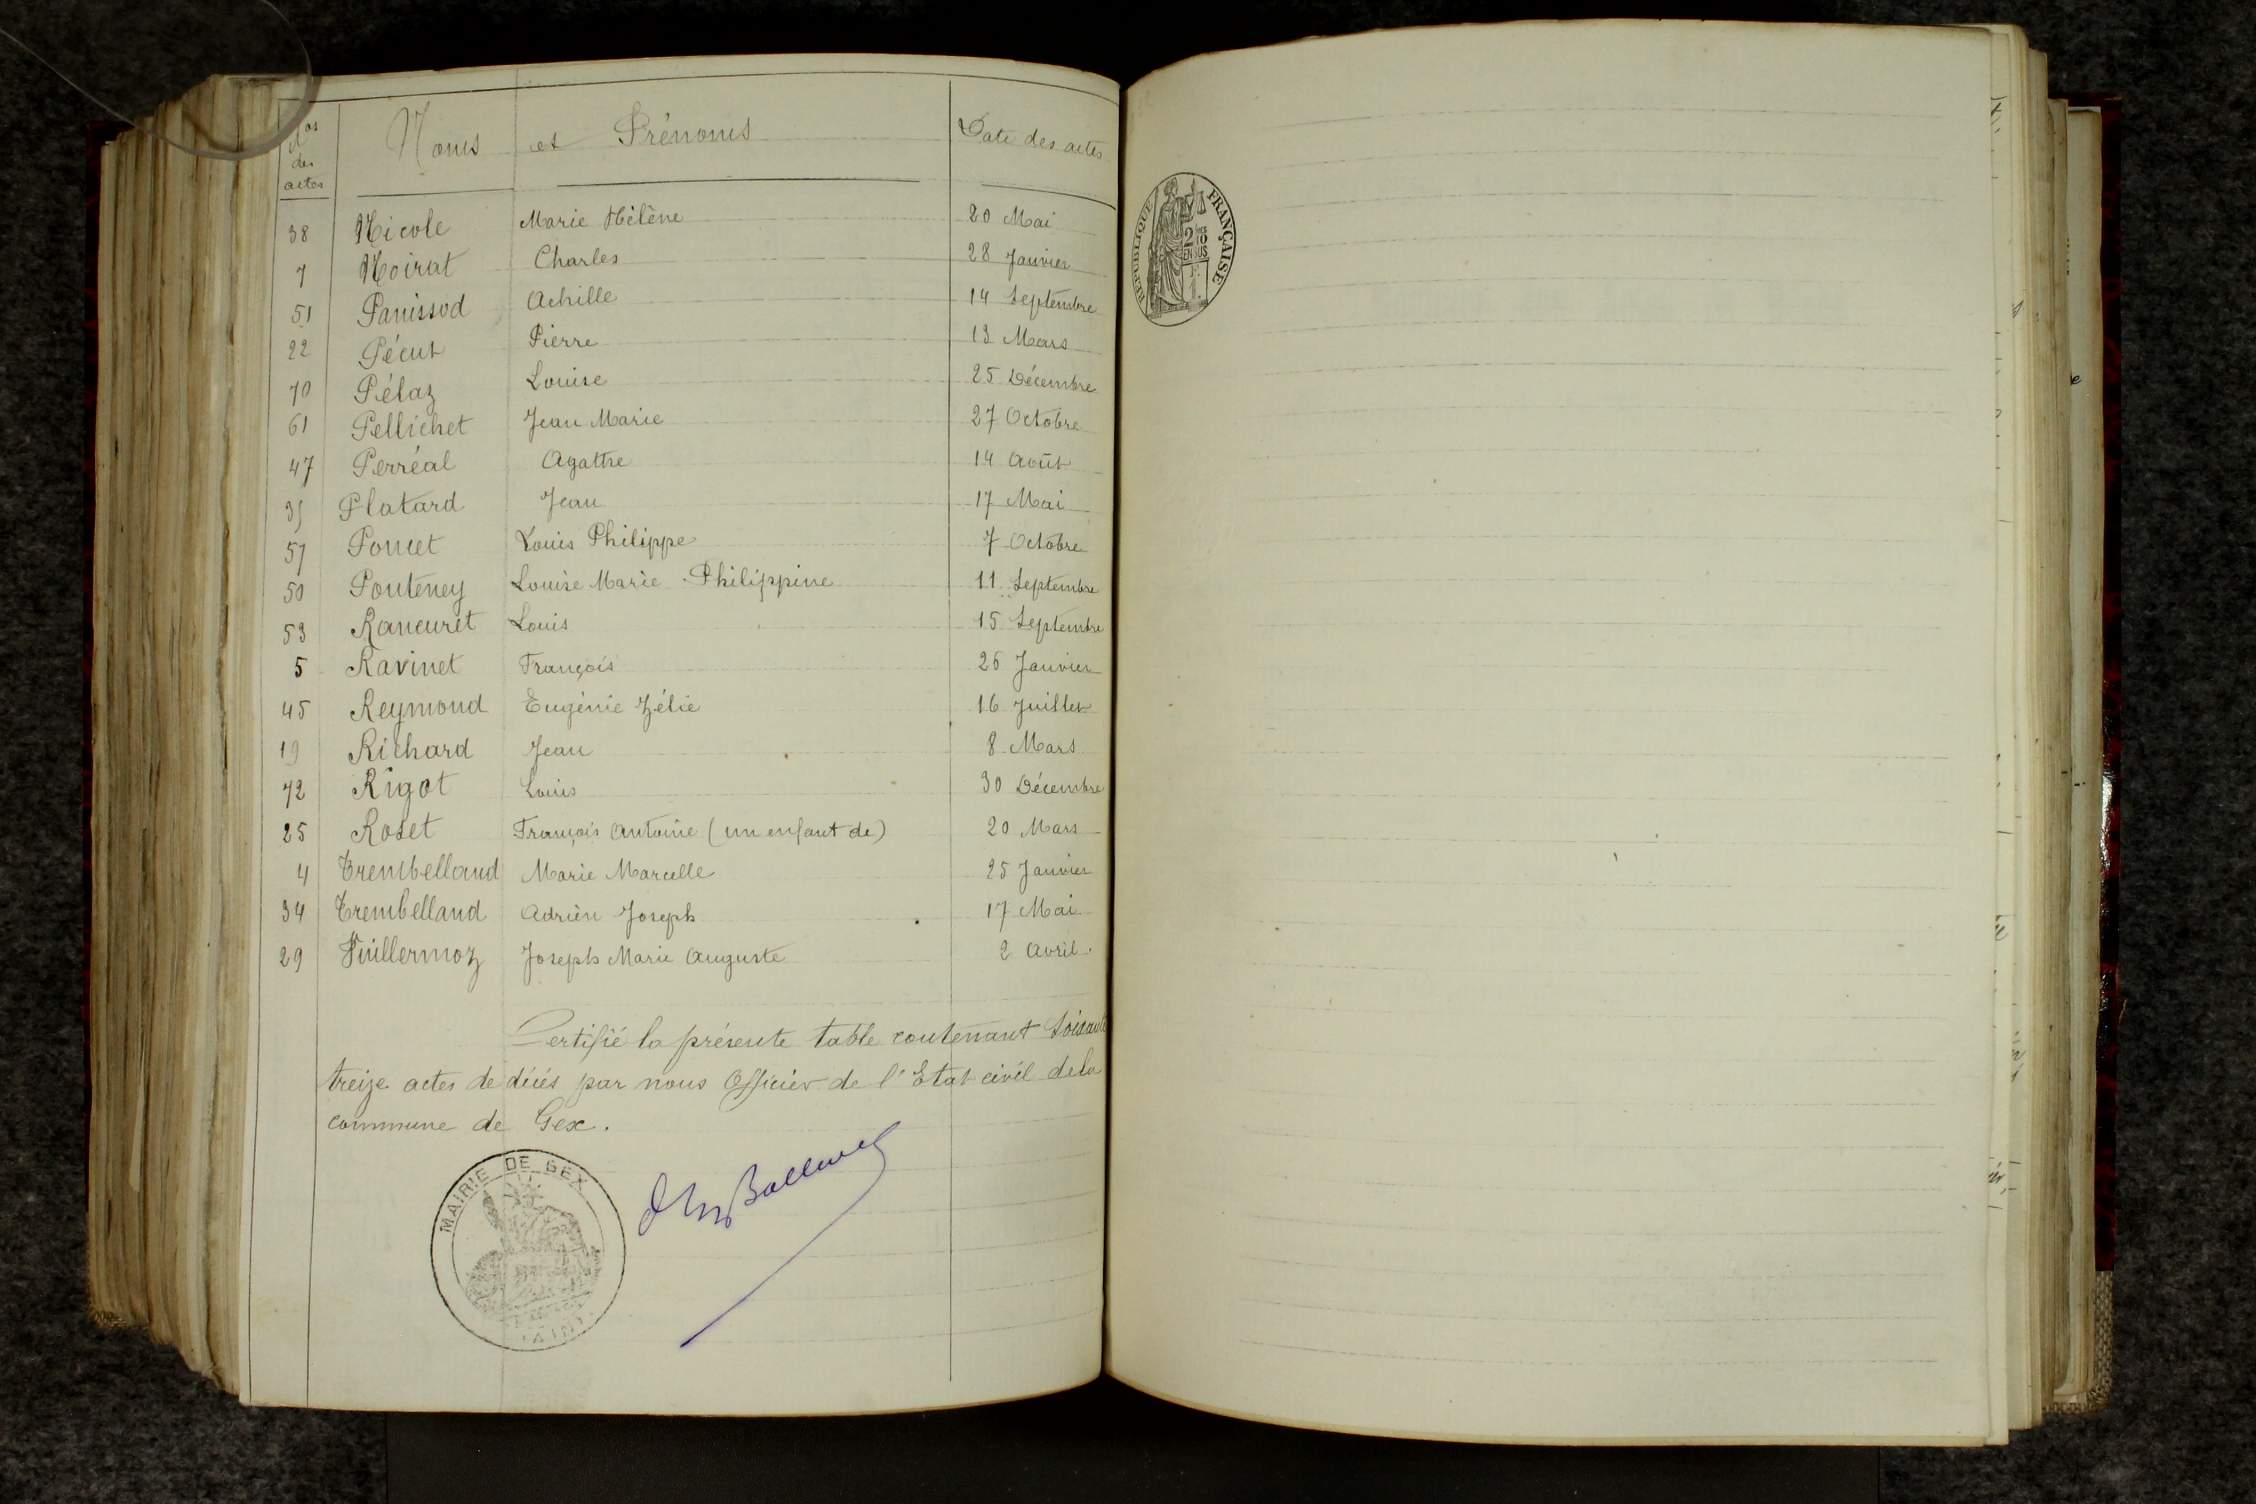 Nos des actes Noms et Prénoms Date des actes
38 Nicole Marie Hélène 20 Mai
7 Noirat Charles 28 Janvier
51 Panissod Achille 14 Septembre
22 Pécut Pierre 13 Mars
70 Pélaz Louise 25 Décembre
61 Pellichet Jean Marie 27 Octobre
47 Perréal Agathe 14 Août
35 Platard Jean 17 Mai
57 Poncet Louis Philippe 7 Octobre
50 Ponteney Louise Marie Philippine 11 Septembre
53 Rancuret Louis 15 Septembre
5 Ravinet François 26 Janvier
45 Reymond Eugénie Zélie 16 Juillet
19 Richard Jean 8 Mars
72 Rigot Louis 30 Décembre
25 Roset François Antoine (un enfant de) 20 Mars
4 Trembelland Marie Marcelle 25 Janvier
34 Trembelland Adrien Joseph 17 Mai
29 Vuillermoz Joseph Marie Auguste 2 Avril.
Certifié la présente table contenant soixante
treize actes de décès par nous Officier de l'Etat civil de la
commune de Gex.
MAIRIE DE GEX
(AIN)
RÉPUBLIQUE FRANÇAISE
2/10
EN SUS
1F.